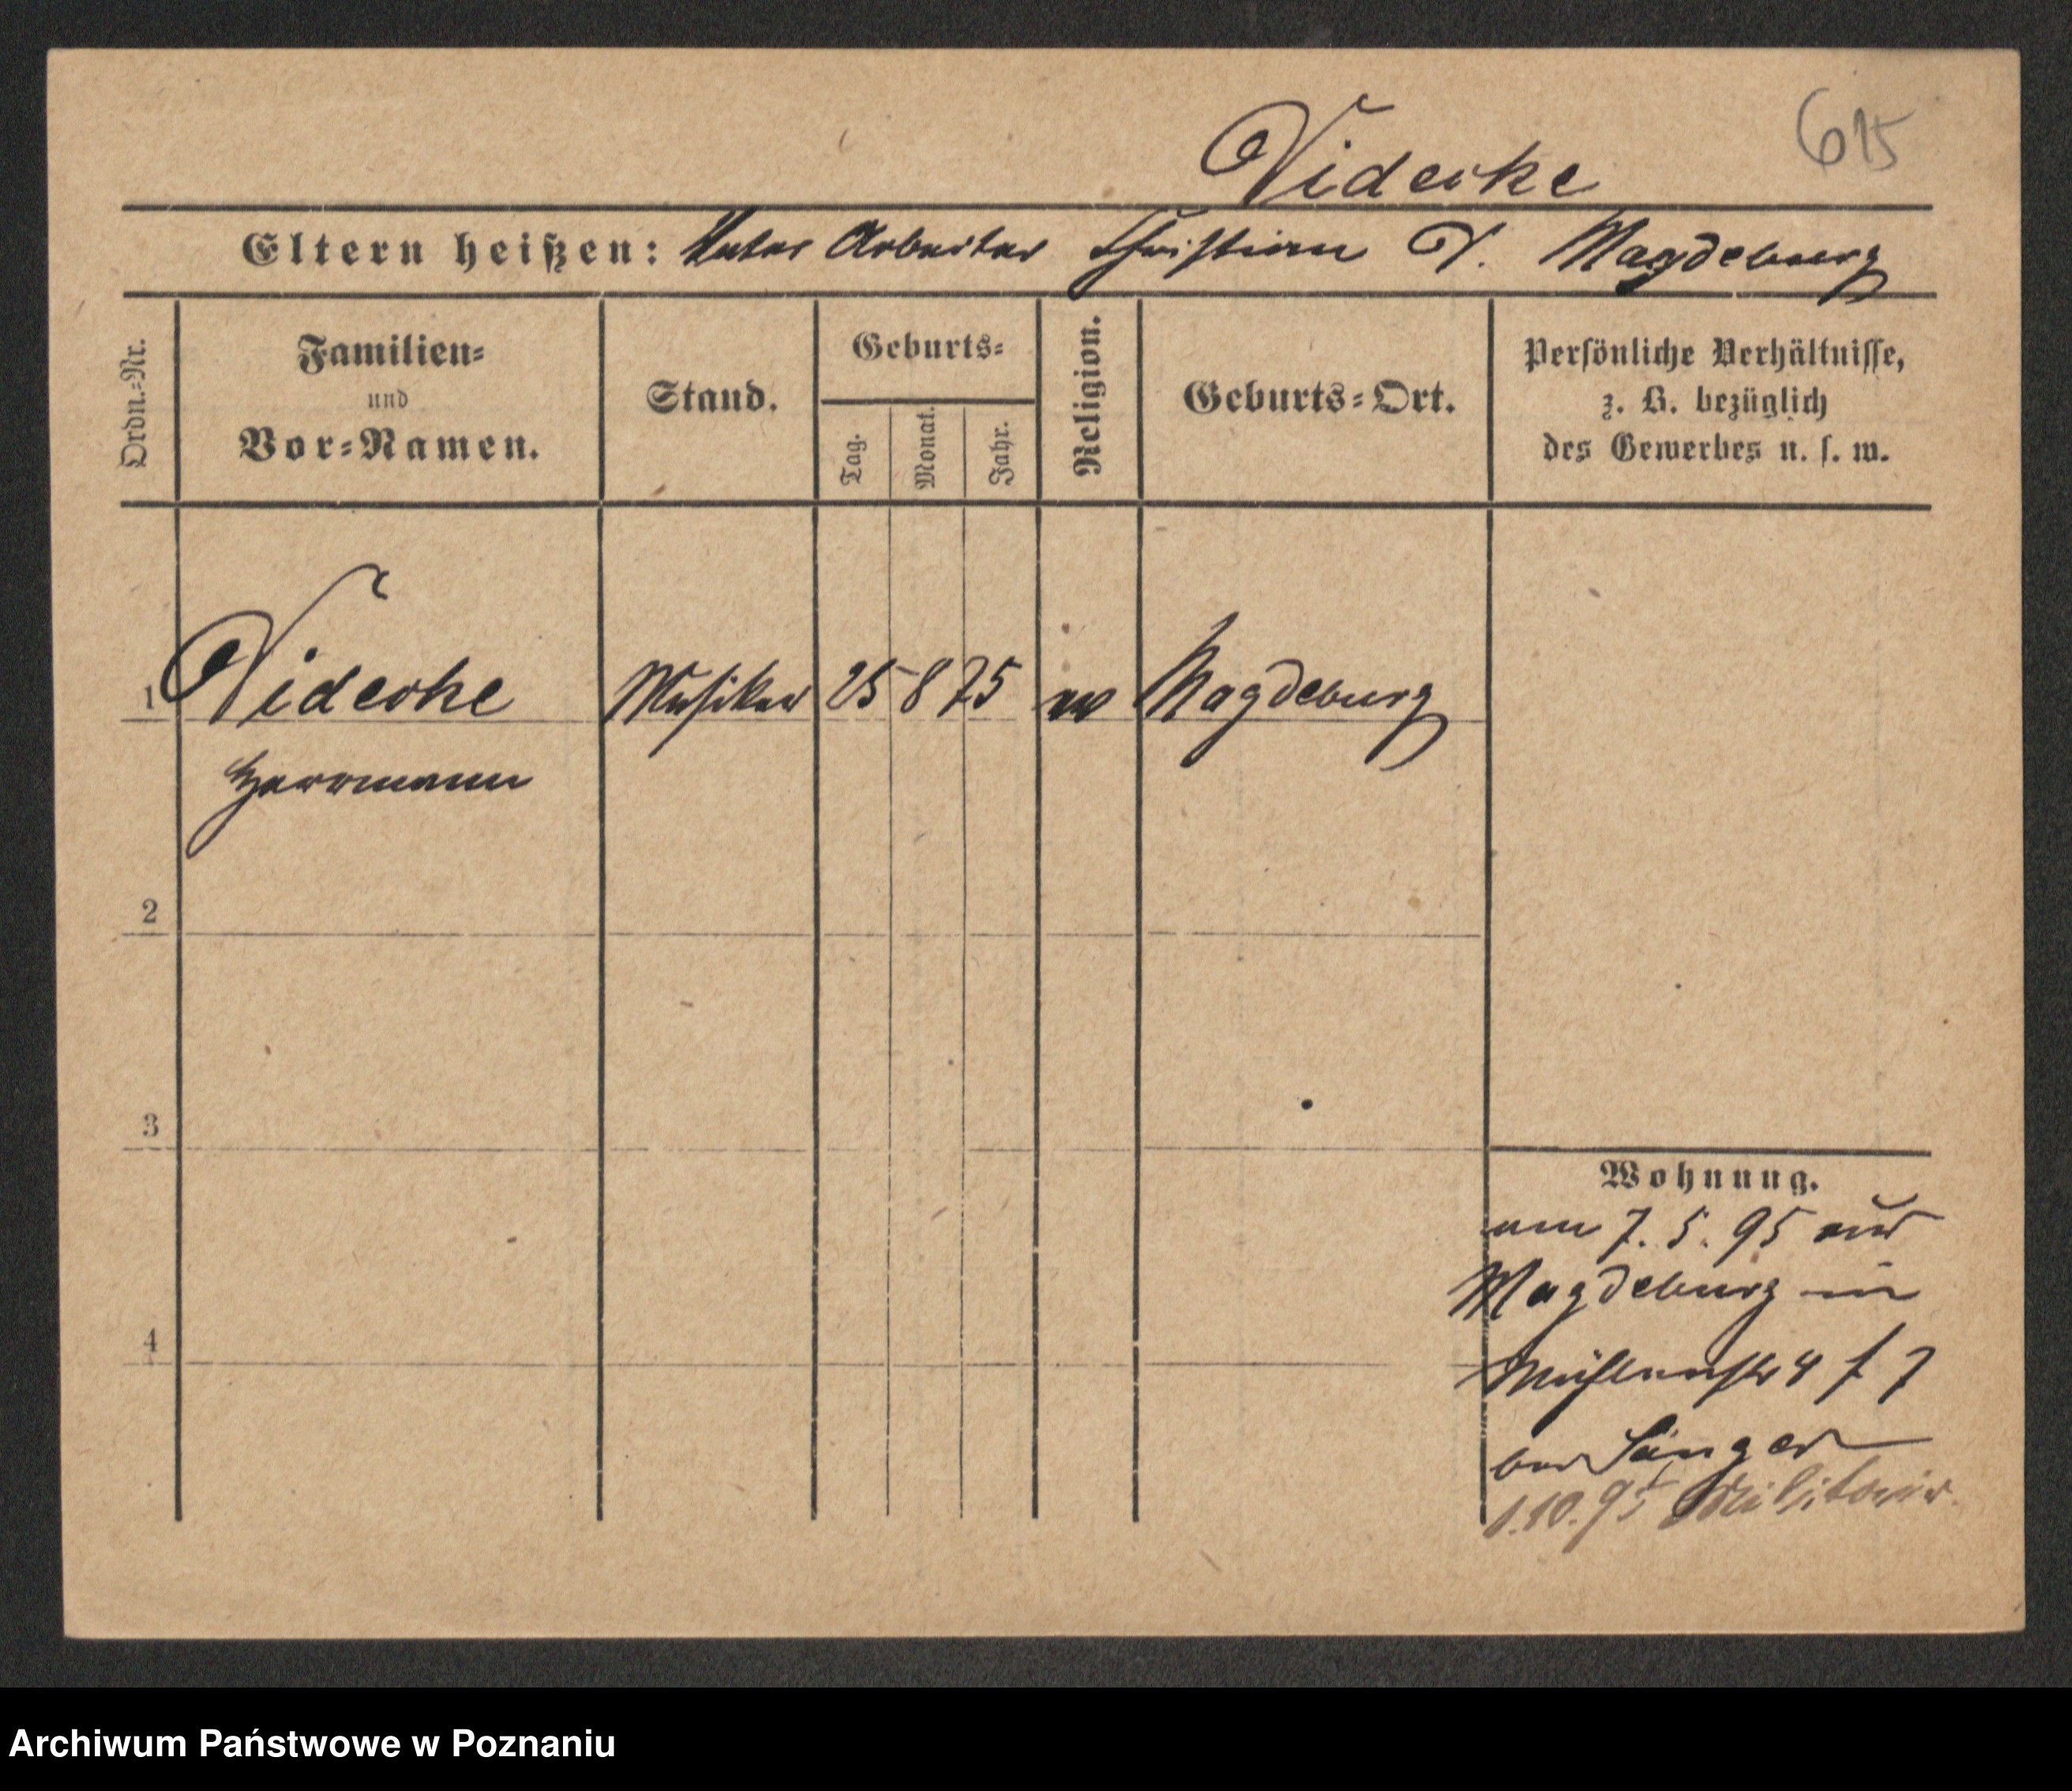 Videcke
615
Eltern heißen: Vater Arbeiter Christian V. Magdeburg
Ordn.-Nr.
Familien-
und
Vor-Namen.
Stand.
Geburts-
Tag.
Monat.
Jahr.
Religion.
Geburts-Ort.
Persönliche Verhältnisse,
z. B. bezüglich
des Gewerbes u. s. w.
1 Videcke Musiker 25 8 75 ev Magdeburg
Herrmann
2
3
4
Wohnung.
am 7. 5. 95 aus
Magdeburg in
Mühlenstr 4 f 7
bei Sänger
1.10.95 Militair.
Archiwum Państwowe w Poznaniu